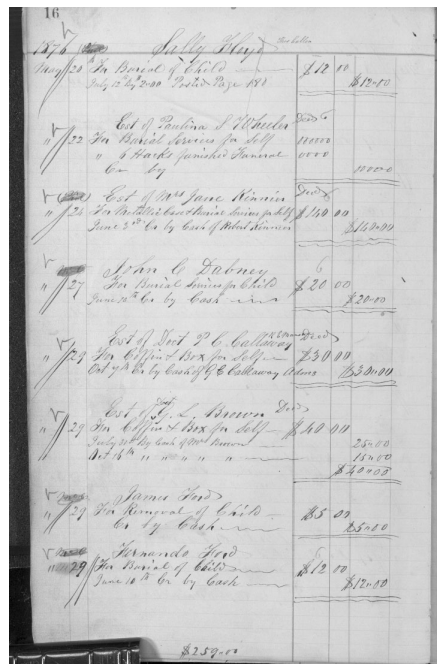 16
1876 Sally Floyd
May 20 For Burial of Child $12 00
July 12th By 2.00 Posted Page 180 $12.00
Est of Paulina S Wheeler Decd
" 22 For Burial Services for Self 00000
" 6 Hacks furnished Funeral 0000
Cr by 00000
Est of Mrs Jane Kinnier Decd
" 26 For Metallic Case & Burial Services for Self $140 00
June 2nd Cr by Cash of Robert Kinnier $140.00
John C Dabney
" 27 For Burial Services for Child $20 00
June 10th Cr by Cash $20.00
Est of Doct P C Callaway Decd
" 29 For Coffin & Box for Self $30 00
Oct 7th Cr by Cash of G C Callaway Admr $30.00
Est of G. L. Brown Decd
" 29 For Coffin & Box for Self $40 00
July 20th By Cash of Mrs Brown 25.00
Oct 16th " " " " " 15.00
$40.00
James Ford
" 29 For Removal of Child $5 00
Cr by Cash $5.00
Fernando Ford
" 29 For Burial of Child $12 00
June 10th Cr by Cash $12.00
$259.00